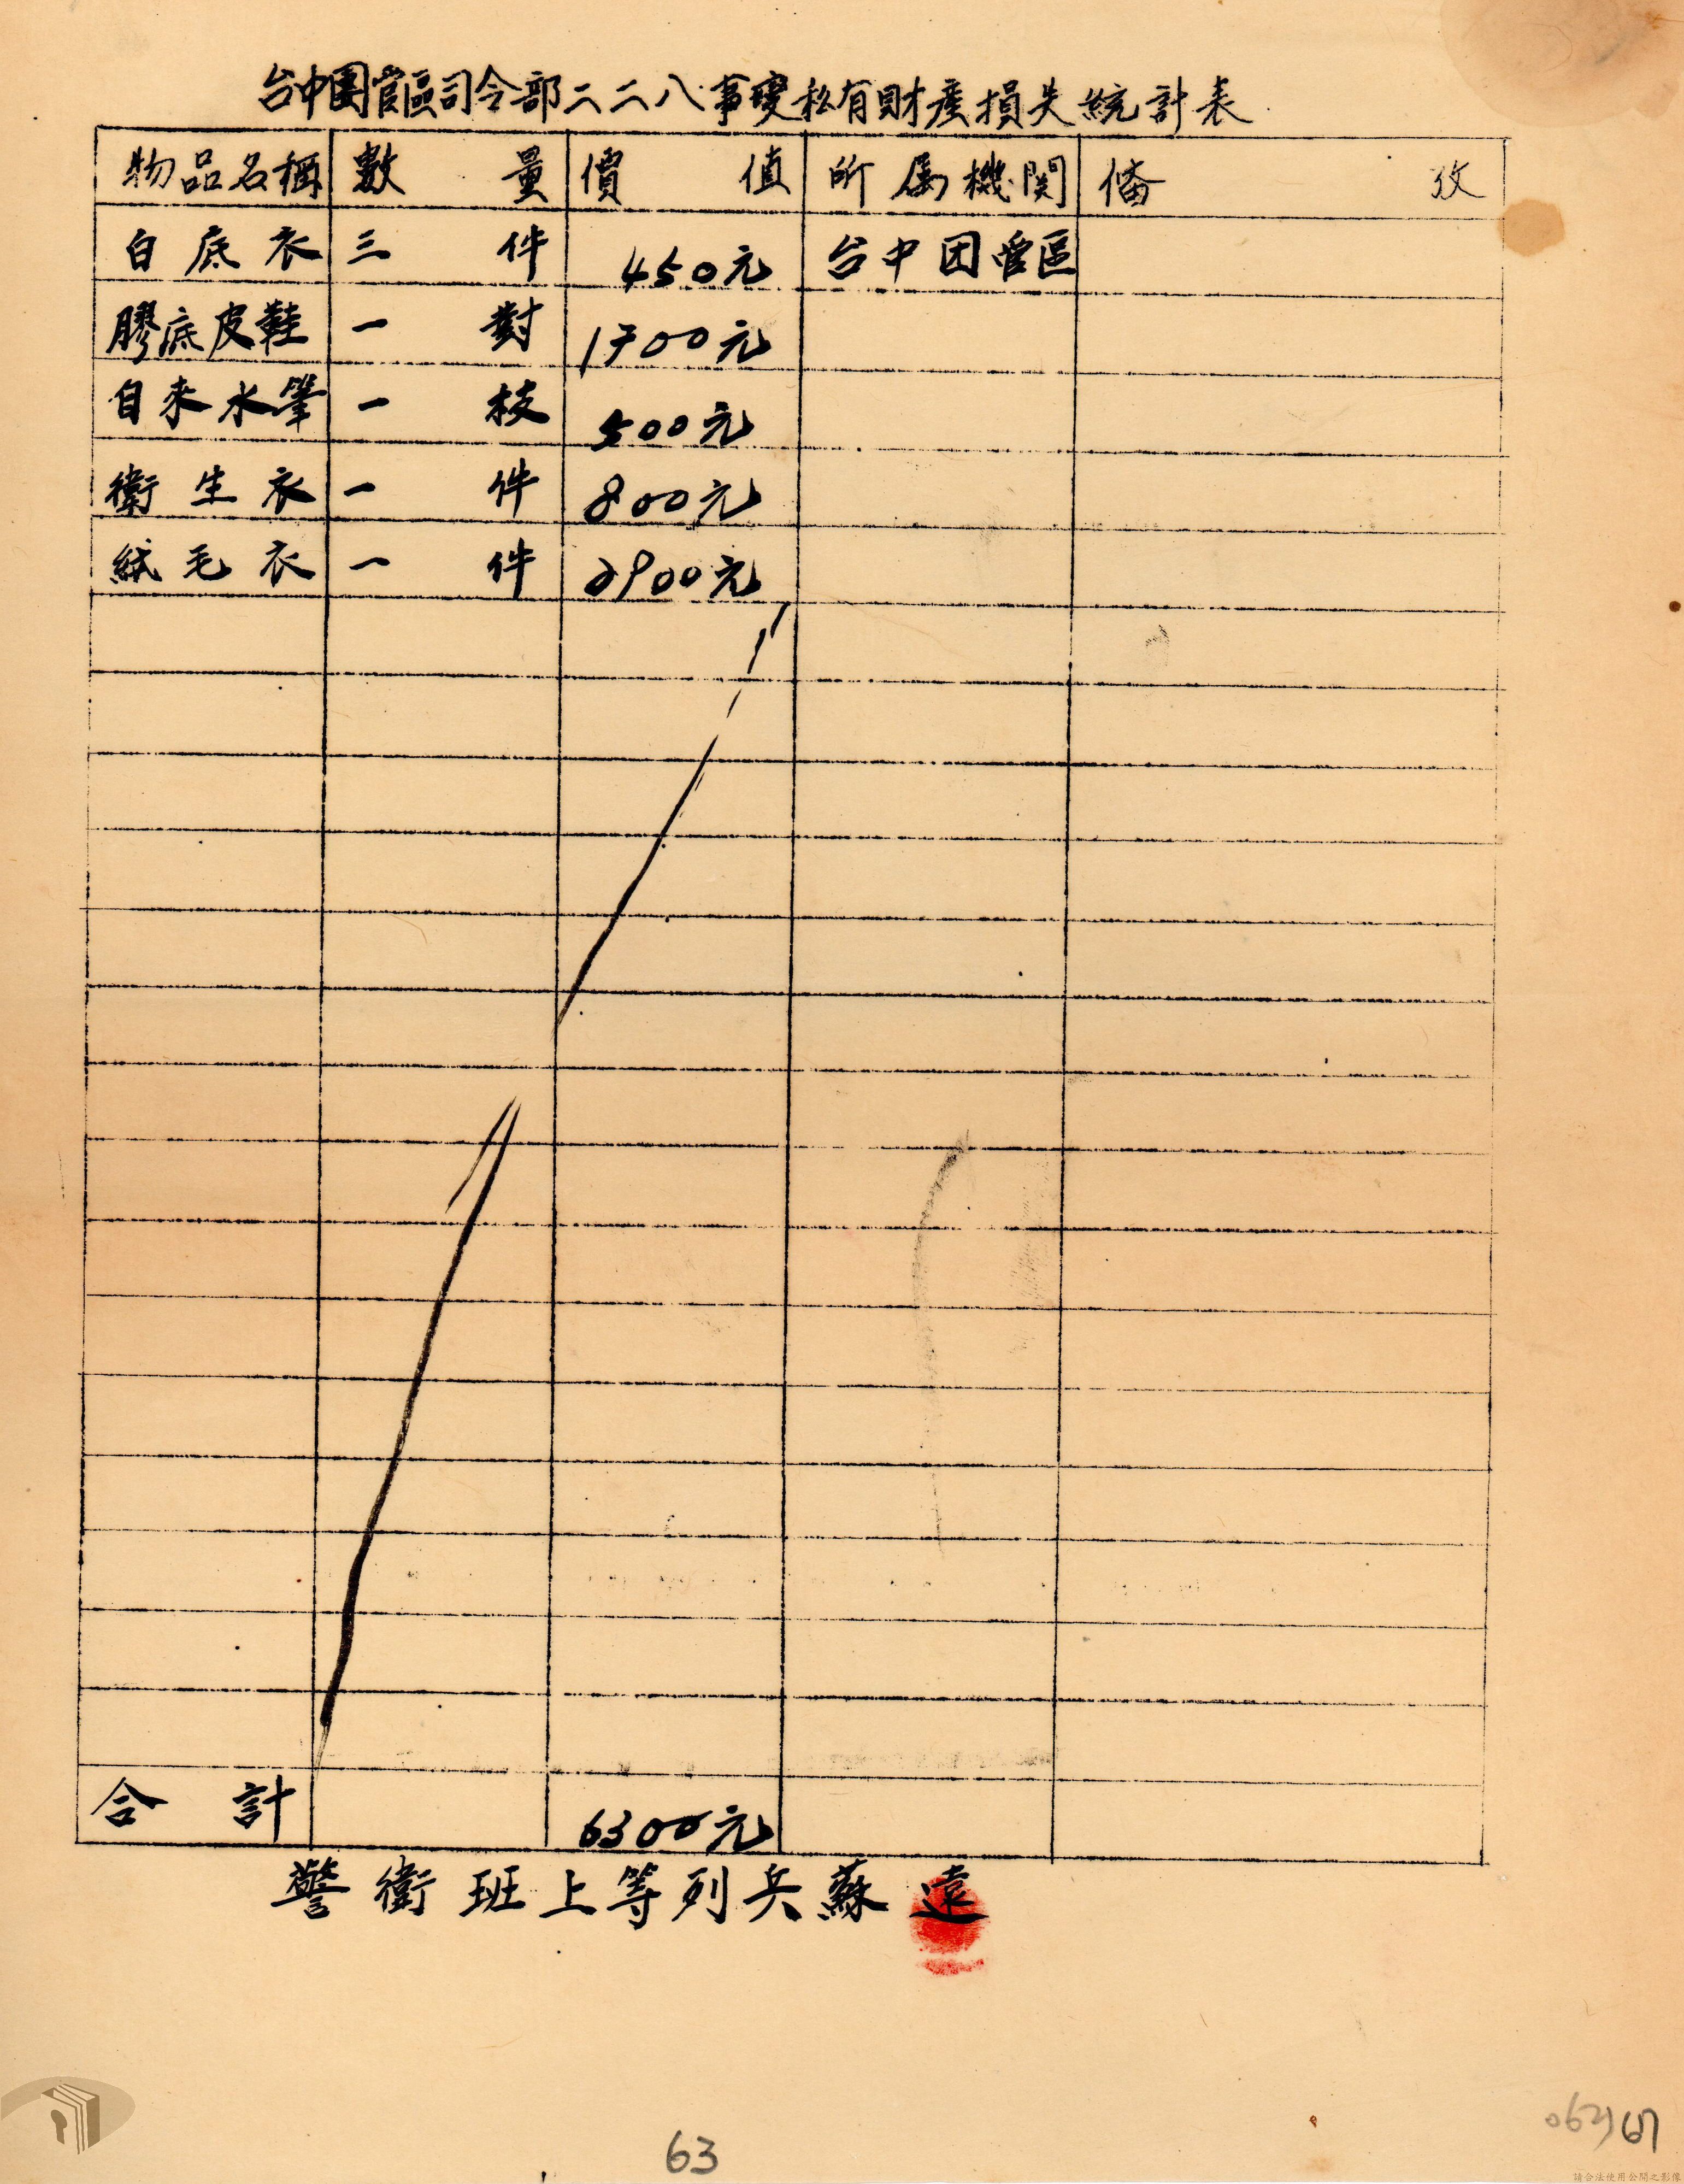 台中團管區司令部二二八事變私有財產損失統計表
物品名稱 數量 價值 所属機関 備攷
白底衣 三件 450元 台中团管區
膠底皮鞋 一對 1700元
自来水筆 一枝 500元
衛生衣 一件 800元
絨毛衣 一件 2900元
合計 6300元
警衛班上等列兵蘇遠
63
請合法使用公開之影像